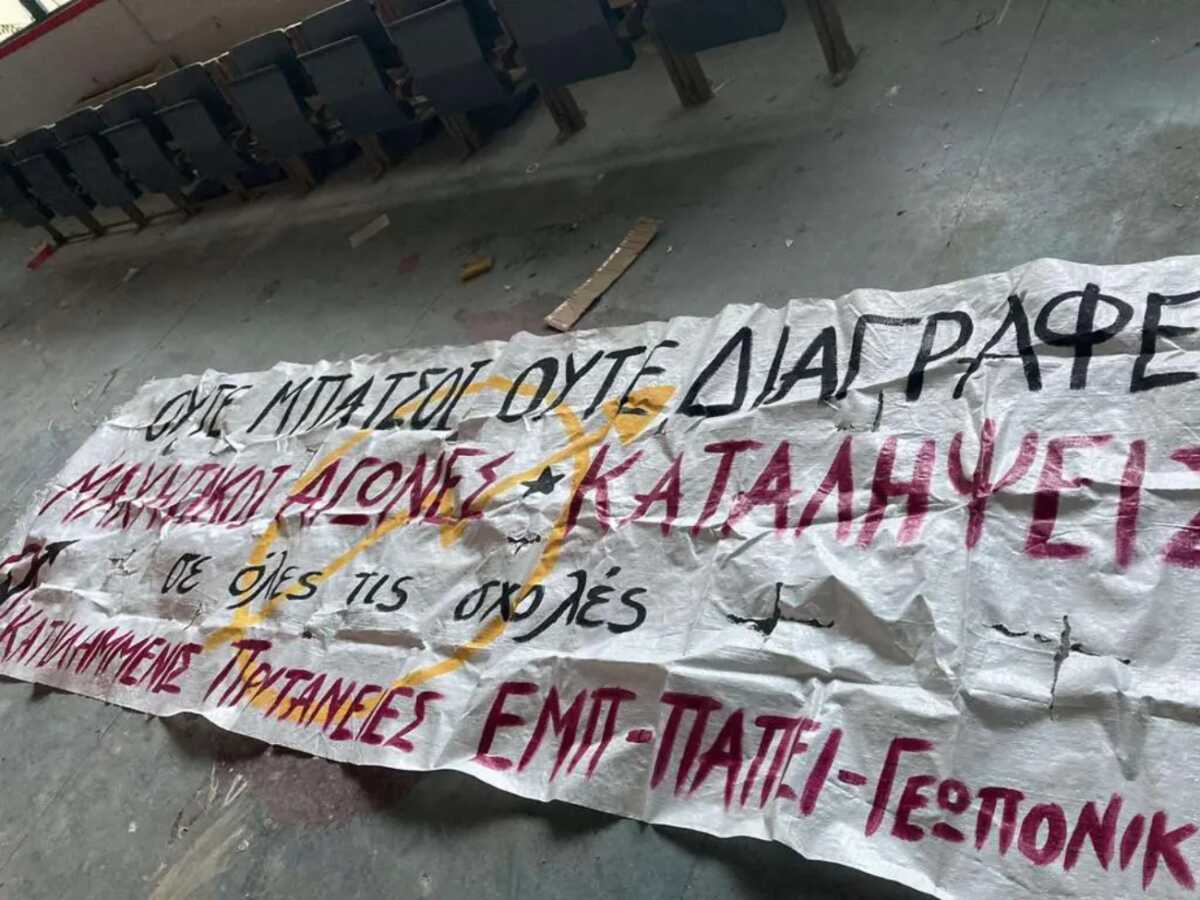 ΟΥΤΕ ΜΠΑΤΣΟΙ ΟΥΤΕ ΔΙΑΓΡΑΦΕ
ΜΑΧΗΤΙΚΟΙ ΑΓΩΝΕΣ ★ ΚΑΤΑΛΗΨΕΙΣ
σε όλες τις σχολές
ΚΑΤΙΛΗΜΜΕΝΕΣ ΠΡΥΤΑΝΕΙΕΣ ΕΜΠ-ΠΑΠΕΙ-ΓΕΩΠΟΝΙΚ